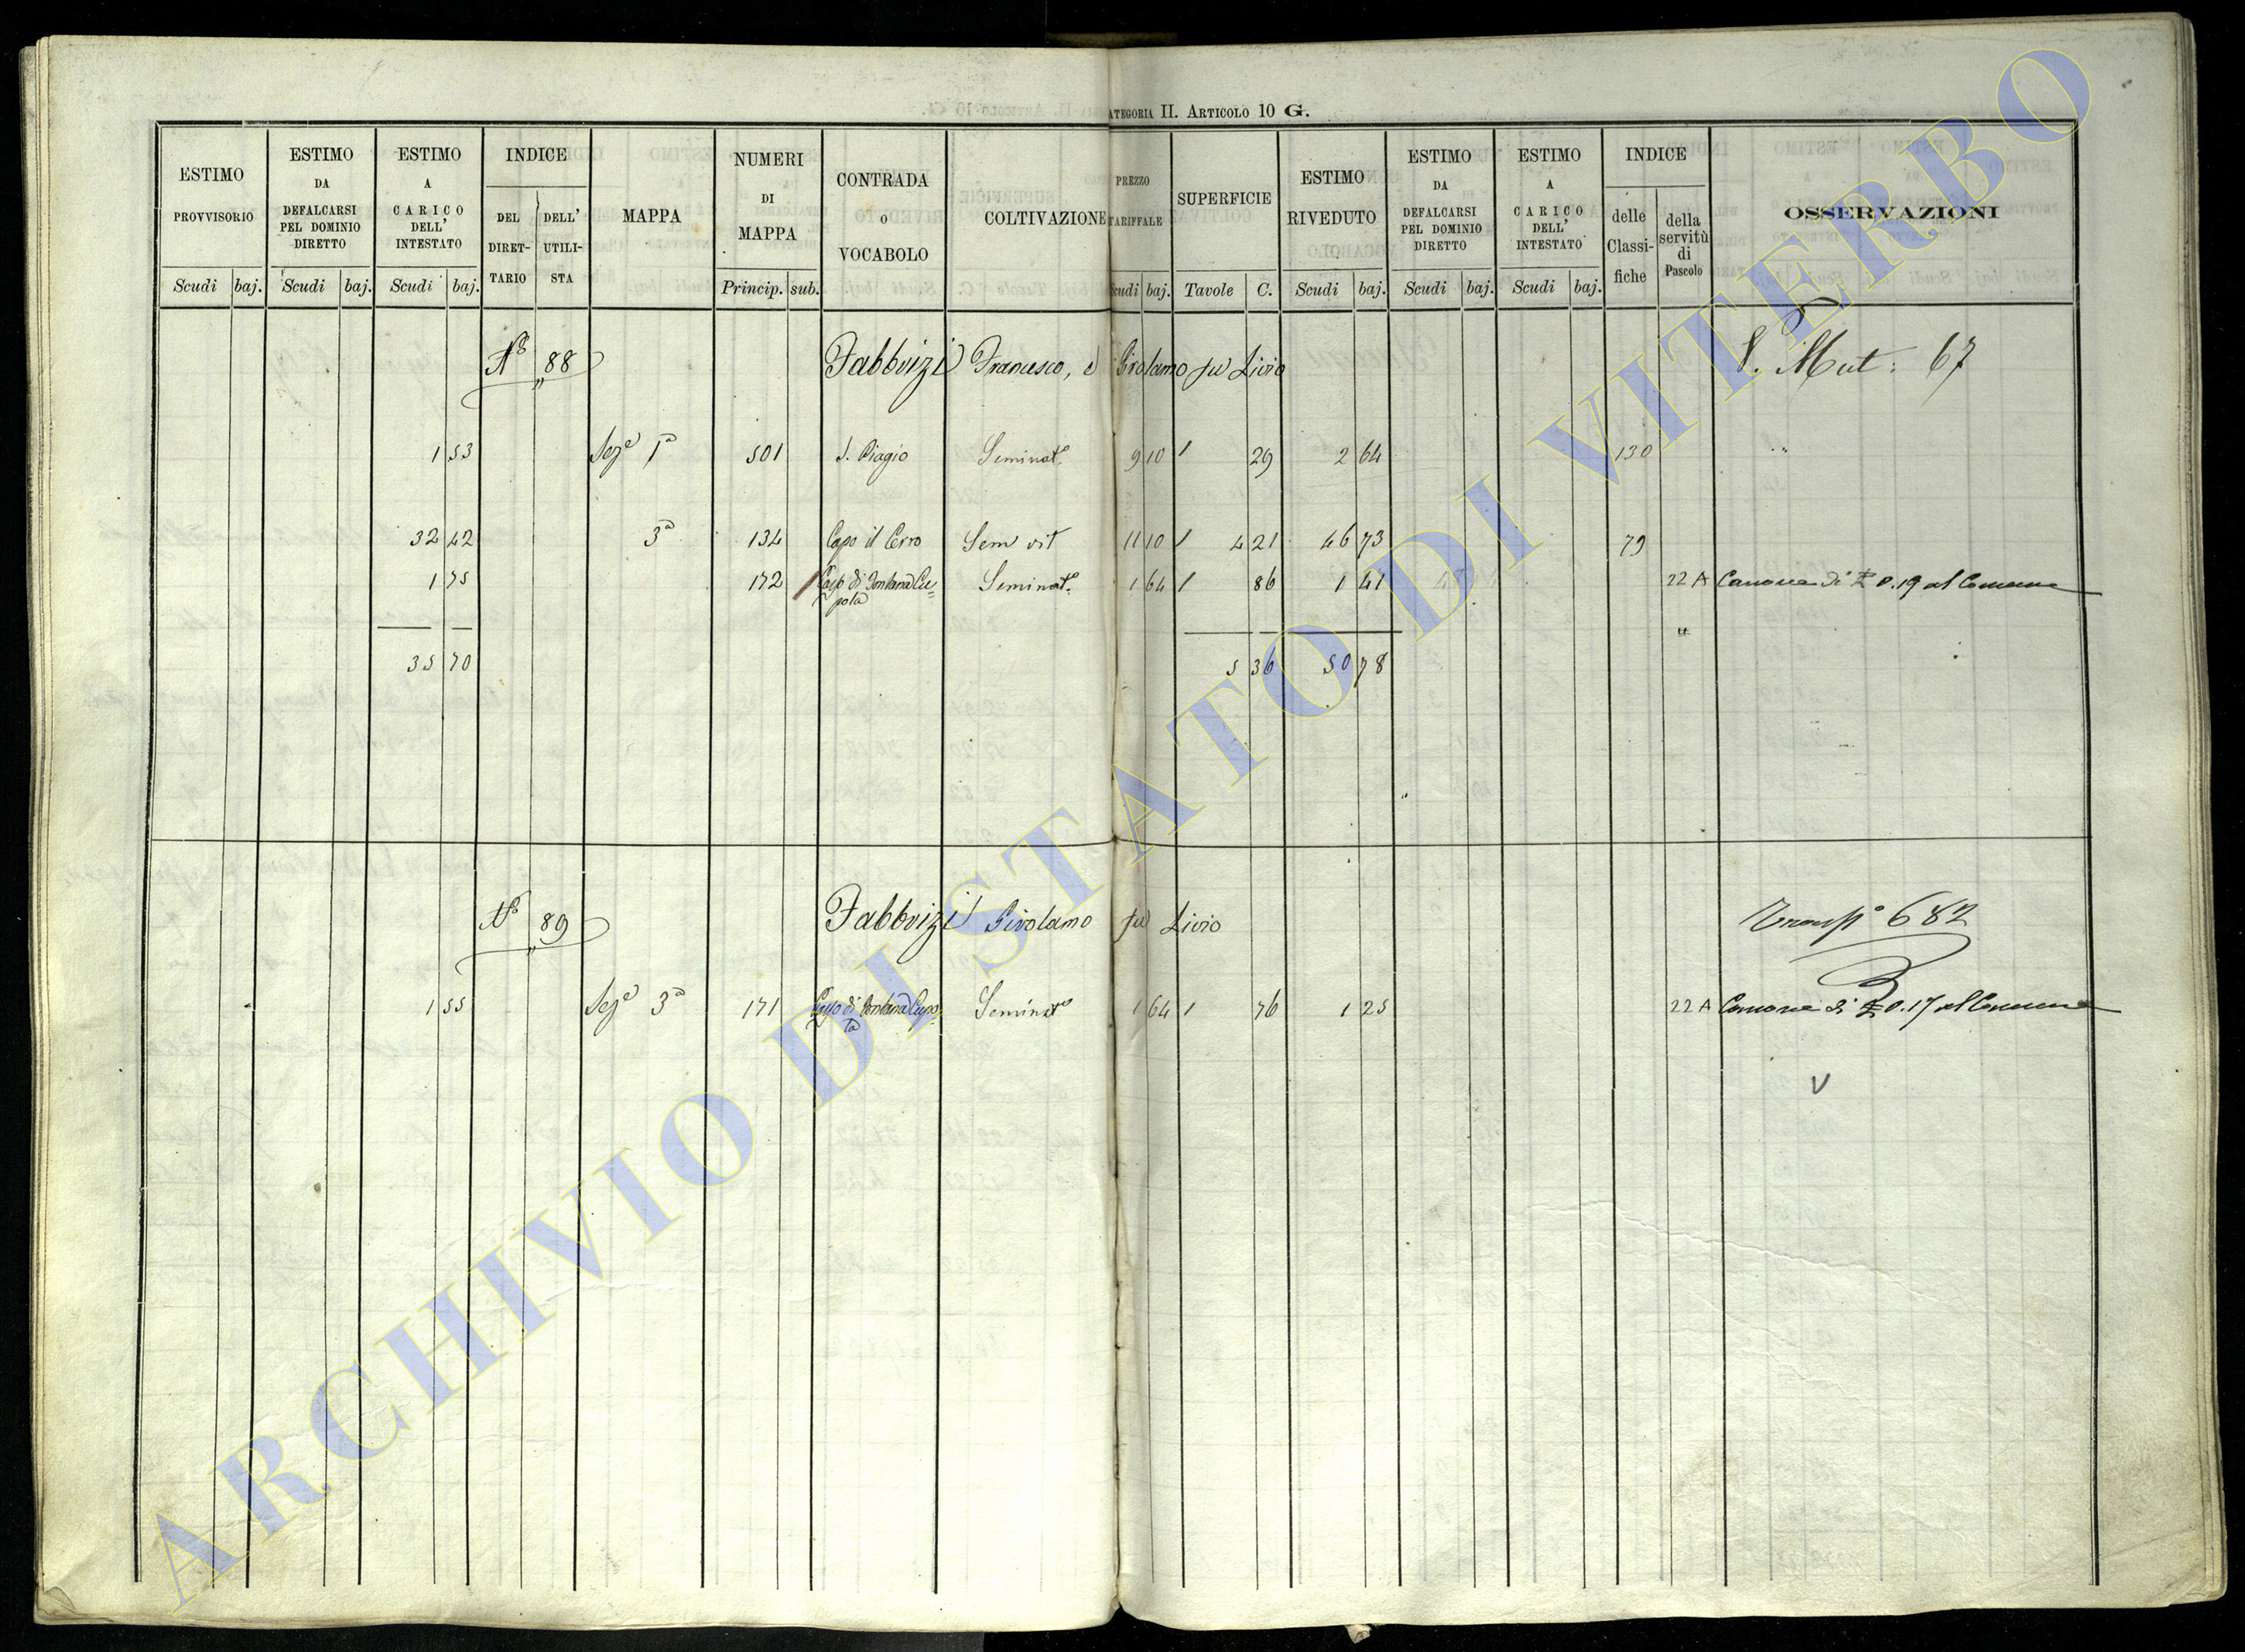 ATEGORIA II. ARTICOLO 10 G.
ESTIMO PROVVISORIO Scudi baj.
ESTIMO DA DEFALCARSI PEL DOMINIO DIRETTO Scudi baj.
ESTIMO A CARICO DELL' INTESTATO Scudi baj.
INDICE DEL DIRET-TARIO DELL' UTILI-STA
MAPPA
NUMERI DI MAPPA Princip. sub.
CONTRADA O VOCABOLO
COLTIVAZIONE
PREZZO TARIFFALE cudi baj.
SUPERFICIE Tavole C.
ESTIMO RIVEDUTO Scudi baj.
ESTIMO DA DEFALCARSI PEL DOMINIO DIRETTO Scudi baj.
ESTIMO A CARICO DELL' INTESTATO Scudi baj.
INDICE delle Classi-fiche della servitù di Pascolo
OSSERVAZIONI
No 88 Fabbrizi Francesco, e Girolamo fu Livio V. Mut: 67
1 53 Seze 1a 501 S. Biagio Seminato 9 10 1 29 2 64 130
32 42 3a 134 Capo il Cerro Sem vit 11 10 4 21 46 73 79
1 75 172 Capo di Fontana Cu= Seminato 1 64 86 1 41 22 A Canone di £ 0.19 al Comune
pola
35 70 5 36 50 78
No 89 Fabbrizi Girolamo fu Livio Trasp° 682
1 55 Seze 3a 171 Capo di Fontana Cupo= Seminato 1 64 76 1 25 22 A Canone di £ 0.17 al Comune
la
V
ARCHIVIO DI STATO DI VITERBO